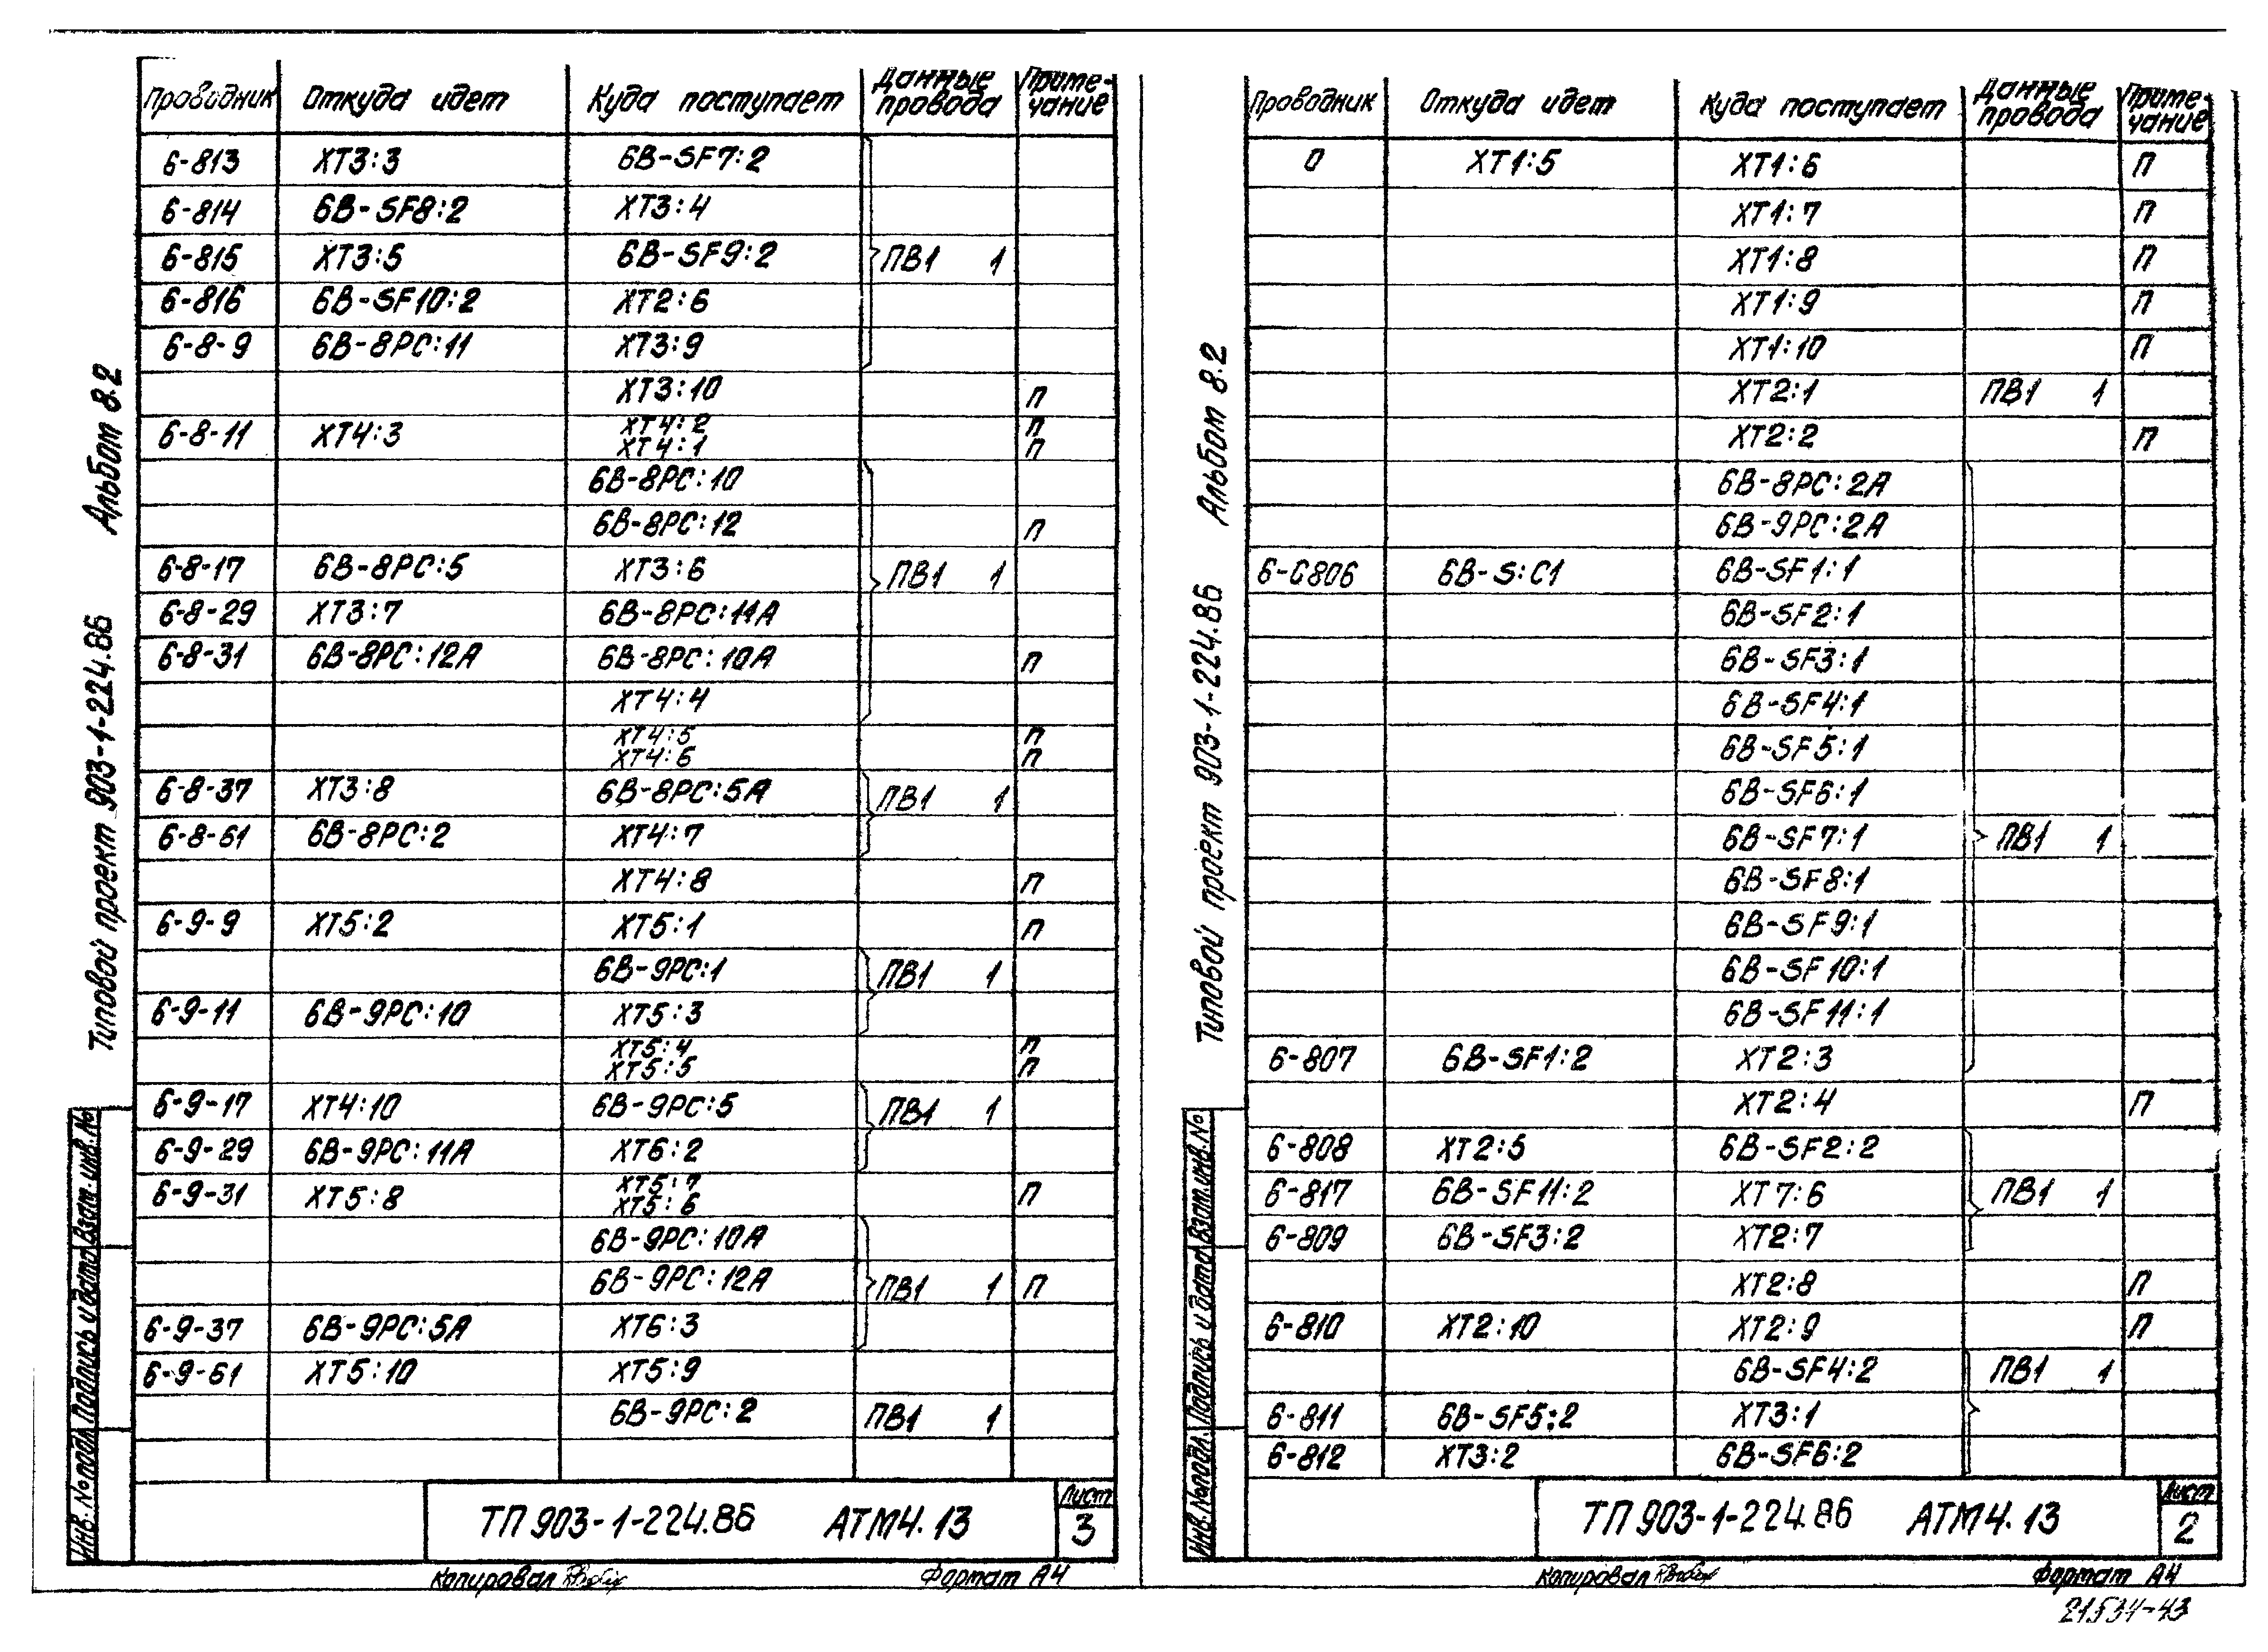 Типовой проект 903-1-224.86 Альбом 8.2
Проводник Откуда идет Куда поступает Данные провода Примечание
6-813 ХТ3:3 6В-SF7:2
6-814 6В-SF8:2 ХТ3:4
6-815 ХТ3:5 6В-SF9:2 ПВ1 1
6-816 6В-SF10:2 ХТ2:6
6-8-9 6В-8РС:11 ХТ3:9
ХТ3:10 П
6-8-11 ХТ4:3 ХТ4:2 П
ХТ4:1 П
6В-8РС:10
6В-8РС:12 П
6-8-17 6В-8РС:5 ХТ3:6 ПВ1 1
6-8-29 ХТ3:7 6В-8РС:11А
6-8-31 6В-8РС:12А 6В-8РС:10А П
ХТ4:4
ХТ4:5 П
ХТ4:6 П
6-8-37 ХТ3:8 6В-8РС:5А ПВ1 1
6-8-61 6В-8РС:2 ХТ4:7
ХТ4:8 П
6-9-9 ХТ5:2 ХТ5:1 П
6В-9РС:1 ПВ1 1
6-9-11 6В-9РС:10 ХТ5:3
ХТ5:4 П
ХТ5:5 П
6-9-17 ХТ4:10 6В-9РС:5 ПВ1 1
6-9-29 6В-9РС:11А ХТ6:2
6-9-31 ХТ5:8 ХТ5:7 П
ХТ5:6
6В-9РС:10А
6В-9РС:12А ПВ1 1 П
6-9-37 6В-9РС:5А ХТ6:3
6-9-61 ХТ5:10 ХТ5:9
6В-9РС:2 ПВ1 1
Инв.№подл. Подпись и дата Взам.инв.№
ТП 903-1-224.86 АТМ4.13 Лист 3
Копировал Формат А4
Типовой проект 903-1-224.86 Альбом 8.2
Проводник Откуда идет Куда поступает Данные провода Примечание
0 ХТ1:5 ХТ1:6 П
ХТ1:7 П
ХТ1:8 П
ХТ1:9 П
ХТ1:10 П
ХТ2:1 ПВ1 1
ХТ2:2 П
6В-8РС:2А
6В-9РС:2А
6-С806 6В-S:С1 6В-SF1:1
6В-SF2:1
6В-SF3:1
6В-SF4:1
6В-SF5:1
6В-SF6:1
6В-SF7:1 ПВ1 1
6В-SF8:1
6В-SF9:1
6В-SF10:1
6В-SF11:1
6-807 6В-SF1:2 ХТ2:3
ХТ2:4 П
6-808 ХТ2:5 6В-SF2:2
6-817 6В-SF11:2 ХТ7:6 ПВ1 1
6-809 6В-SF3:2 ХТ2:7
ХТ2:8 П
6-810 ХТ2:10 ХТ2:9 П
6В-SF4:2 ПВ1 1
6-811 6В-SF5:2 ХТ3:1
6-812 ХТ3:2 6В-SF6:2
Инв.№подл. Подпись и дата Взам.инв.№
ТП 903-1-224.86 АТМ4.13 Лист 2
Копировал Формат А4
21534-43